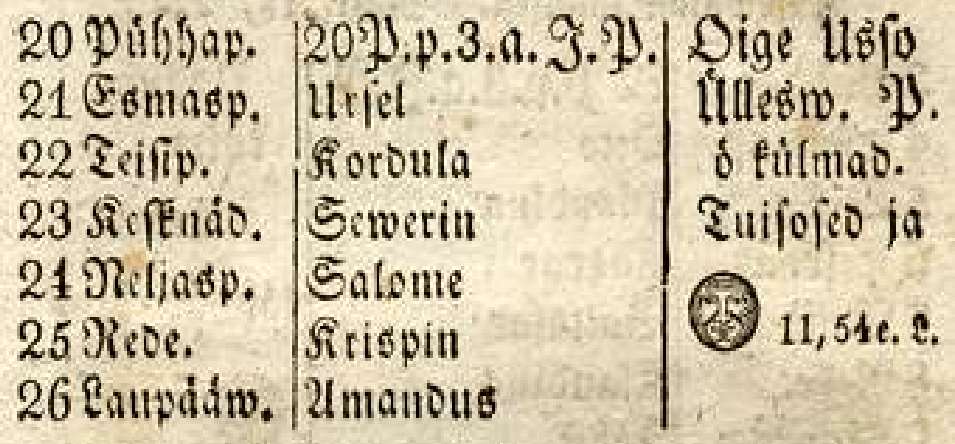 20 Pühhap. 20 P. p. 3. a. J. P. Öige Usso
21 Esmasp. Ursel Üllesw. P.
22 Teisip. Kordula ö külmad.
23 Kesknäd. Sewerin Tuisosed ja
24 Neljasp. Salome
25 Rede. Krispin 11, 54 e. L.
26 Laupääw. Amandus